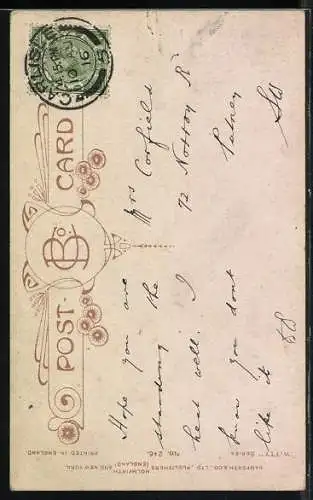 POST CARD
B&Co
CARLISLE
16
Hope you are
standing the
heat well. I
know you dont
like it
Mrs Corfield
72 Norroy Rd
Putney
SW
"WITTY" SERIES
No. 246.
PRINTED IN ENGLAND.
BAMFORTH & CO., LTD., PUBLISHERS,
HOLMFIRTH (ENGLAND) AND NEW YORK.